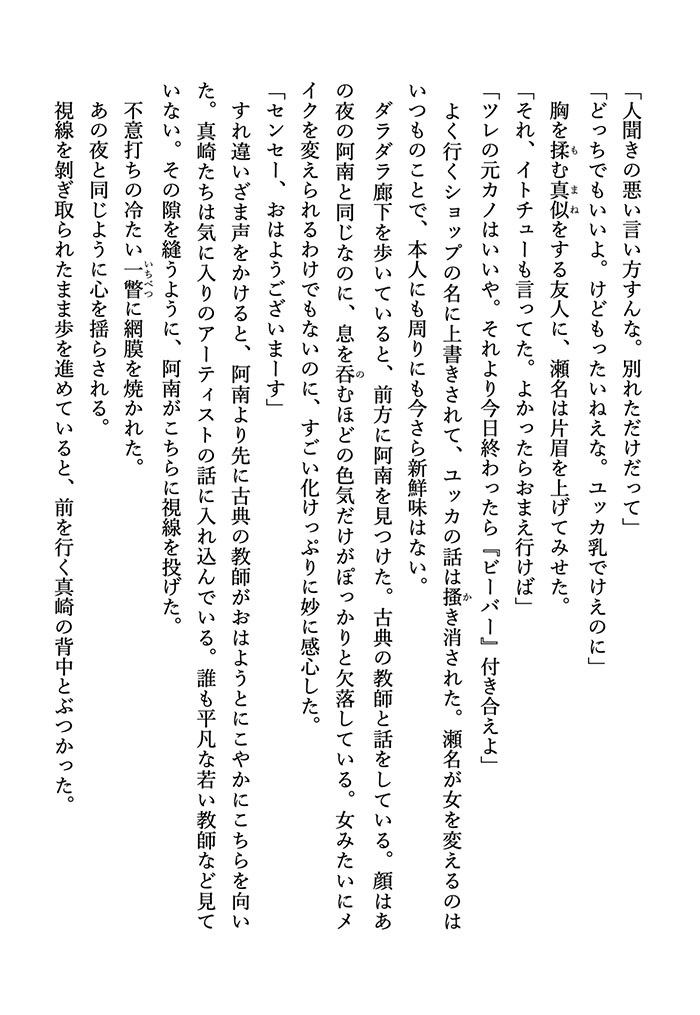 「人聞きの悪い言い方すんな。別れただけだって」
「どっちでもいいよ。けどもったいねえな。ユッカ乳でけえのに」
胸を揉む真似をする友人に、瀬名は片眉を上げてみせた。
「それ、イトチューも言ってた。よかったらおまえ行けば」
「ツレの元カノはいいや。それより今日終わったら『ビーバー』付き合えよ」
よく行くショップの名に上書きされて、ユッカの話は掻き消された。瀬名が女を変えるのは
いつものことで、本人にも周りにも今さら新鮮味はない。
ダラダラ廊下を歩いていると、前方に阿南を見つけた。古典の教師と話をしている。顔はあ
の夜の阿南と同じなのに、息を呑むほどの色気だけがぽっかりと欠落している。女みたいにメ
イクを変えられるわけでもないのに、すごい化けっぷりに妙に感心した。
「センセー、おはようございまーす」
すれ違いざま声をかけると、阿南より先に古典の教師がおはようとにこやかにこちらを向い
た。真崎たちは気に入りのアーティストの話に入れ込んでいる。誰も平凡な若い教師など見て
いない。その隙を縫うように、阿南がこちらに視線を投げた。
不意打ちの冷たい一瞥に網膜を焼かれた。
あの夜と同じように心を揺らされる。
視線を剝ぎ取られたまま歩を進めていると、前を行く真崎の背中とぶつかった。